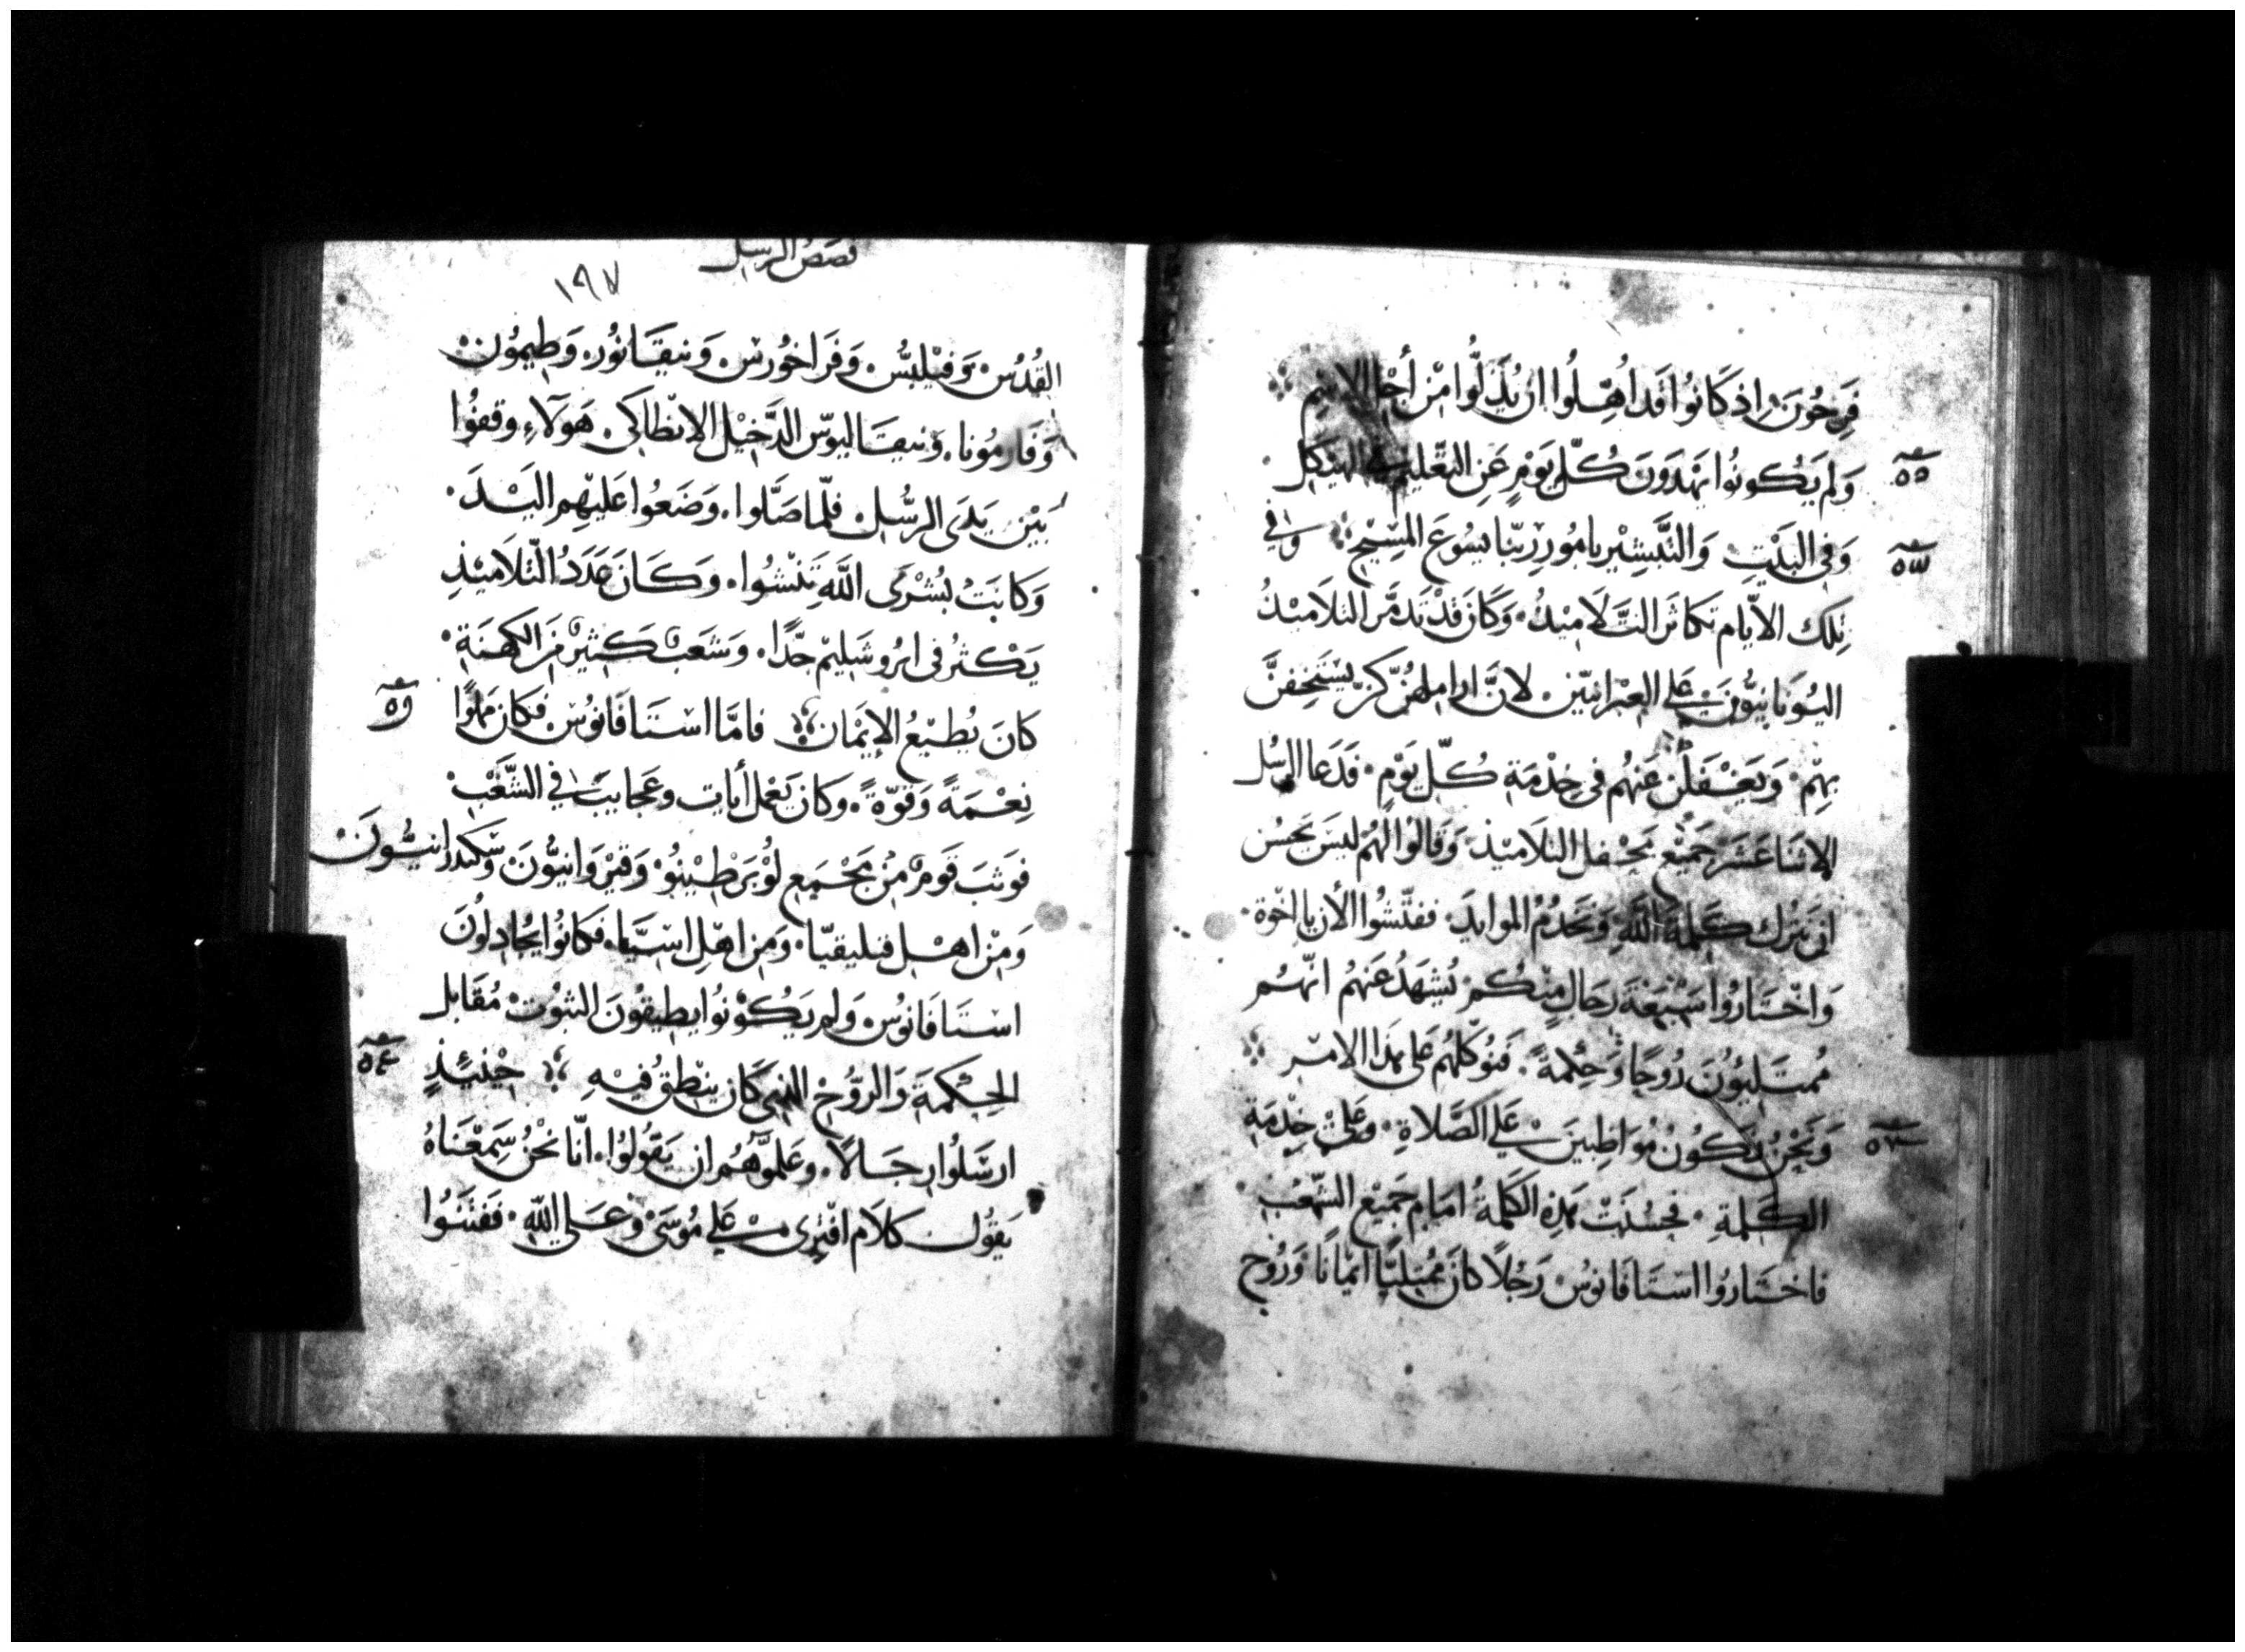 فَرِحُونَ إذ كَانُوا قَد اُهِّلُوا ان يُذَلُّوا مْن أجْل الاسْم
وَلم يَكُونُوا يَهْدَوْنَ كُلّ يَوْمٍ عَنِ التعْليم في الهيْكَل
وَفي البَيْتِ وَالتَبْشِيْر بامُورِ رَبّنا يسُوعَ المسِيْح وفي
تِلك الأيّام تكاثر التَّلَامِيْذُ وَكانَ قدْ تَذمَّر التلَامِيْذُ
اليُونَانِيّونَ على العِبْرانِيّين لانَّ اراملهُنّ كنّ يسْتَخِفنَّ
بهِمْ وَيَغْفَلْن عَنهُم في خِدْمَة كُلّ يَوْمٍ فَدَعا الرسُل
الاثنَا عَشَر جَمِيْع مَحْفل التلَاميْذ وَقَالوْا لهُمْ ليسَ يحسُن
ان نتْرك كَلمةَ اللهِ وَنَخدُمُ الموايدَ ففتّشوا الأن يا اخْوة
وَاخْتَارُوا سَبْعَةَ رجَالٍ منْكُمْ يُشهَدُ عَنهُمْ انّهُم
مُمتَلِيُوْنَ رُوحًا وَحِكْمةً فَنُوَكّلهُم عَلى هذا الامْر
وَنَحْنُ نَكُونُ مُوَاظِبينَ عَلى الصَّلاةِ وعَلى خِدْمَة
الكَلمةِ فحسُنَتْ هَذِه الكَلمةُ امَام جَمِيْع الشّعْبِ
فاخْتَارُوا اسْتَافَانوُسْ رَجُلًا كانَ مُمتلِيًا ايْمَانًا وَرُوْح
٥٥
٥٦
٥٧
قصَصُ الرسل
١٩٧
القُدُسْ وَفيْلِبُّس وَفَرَاخوُرسْ وَنيقَانوُر وَطِيمُون
وَفَارمُونا وَنيقَاليوّس الدَّخِيْل الانْطاكي هَولَاءِ وقفوُا
بَيْن يَدَى الرسُّل فلّما صَلَّوا وَضَعُوا عَليْهم اليَدَ
وَكانَتْ بُشْرَى اللهِ تَنْشُوا وكَانَ عَدَدُ التّلَاميْذِ
يَكْثرُ في ايرُوشَليْم جّدًا وَشَعَبٌ كَثيرٌ مَن الكهنَةِ
كانَ يُطيْعُ الإيْمَان فامَّا اسْتَافَانوُس فكان مملوًا
نِعْمَةً وَقوّةً وكان يَعْمل أيات وعَجايبَ في الشَّعْبْ
فوَثبَ قَومٌ مْن مَجْمَع لوُبَرْطيْنوُ وَقيْرَوانيّونَ وسَكندرانيُّونَ
وَمْن اهْل قيليقيّا وَمِن اهْلِ اسْيَّا فكانوُا يُجادِلوُنَ
اسْتَافَانوُس وَلم يَكُوْنوُا يطيقوُنَ الثبوُتْ مُقَابل
الحِكْمَة وَالرّوُحْ الذي كَان ينْطِقُ فيْهِ حيْنَئذٍ
ارسَلُوا رجَالًا وعَلمّوهُم ان يَقُولوُا انّا نحْنُ سَمِعْنَاهُ
يَقوُل كلَام افْتِرى عَلى مُوسَى وعَلى اللهِ فَفَتَنوُا
٥٤